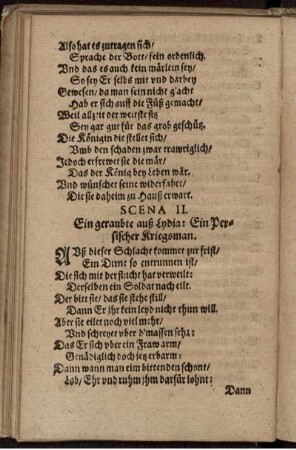 Also hat es zutragen sich/
Sprache der Bott/ fein ordenlich.
Vnd das es auch kein märlein sey/
So sey Er selbs mit vnd darbey
Gewesen/ da man sein nicht g'acht
Hab er sich auff die Füß gemacht/
Weil allzeit der weitste sitz
Sey gar gut für das grob geschütz.
Die Königin die stellet sich/
Vmb den schaden zwar trawriglich/
Jedoch erfrewet sie die mär/
Das der König bey Leben wär.
Vnd wünschet seine widerfahrt/
Die sie daheim zu Hauß erwart.
SCENA II.
Ein geraubte auß Lydia: Ein Per-
sischer Kriegsman.
AVß dieser Schlacht kommet zur frist/
Ein Dirne so entrunnen ist/
Die sich mit der flucht hat verweilt:
Derselben ein Soldat nach eilt.
Der bitt sie/ das sie stehe still/
Dann Er jhr kein leyd nicht thun will.
Aber sie eilet noch viel mehr/
Vnd schreyet vber d'massen sehr:
Das Er sich vber ein Fraw arm/
Genädiglich doch jetz erbarm:
Dann wann man eim bittenden schont/
Lob/ Ehr vnd ruhm jhm darfür lohnt:
Dann